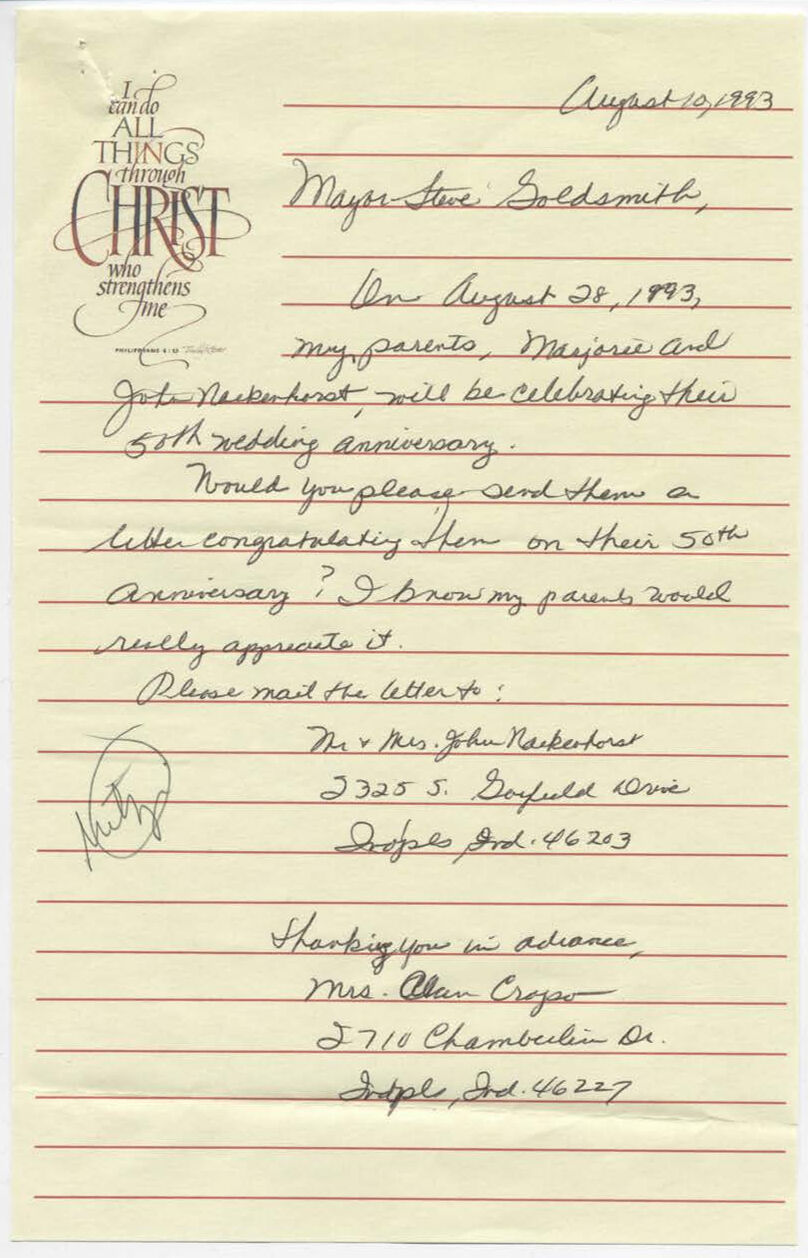 I
can do
ALL
THINGS
through
CHRIST
who
strengthens
me
PHILIPPIANS 4:13
August 10, 1993
Mayor Steve Goldsmith,
On August 28, 1993,
my parents, Marjorie and
John Nackenhorst, will be celebrating their
50th wedding anniversary.
Would you please send them a
letter congratulating them on their 50th
Anniversary? I know my parents would
really appreciate it.
Please mail the letter to:
Mr & Mrs. John Nackenhorst
2325 S. Garfield Drive
Indpls, Ind. 46203
Thanking you in advance,
Mrs. Alan Crapo
2710 Chamberlin Dr.
Indpls, Ind. 46227